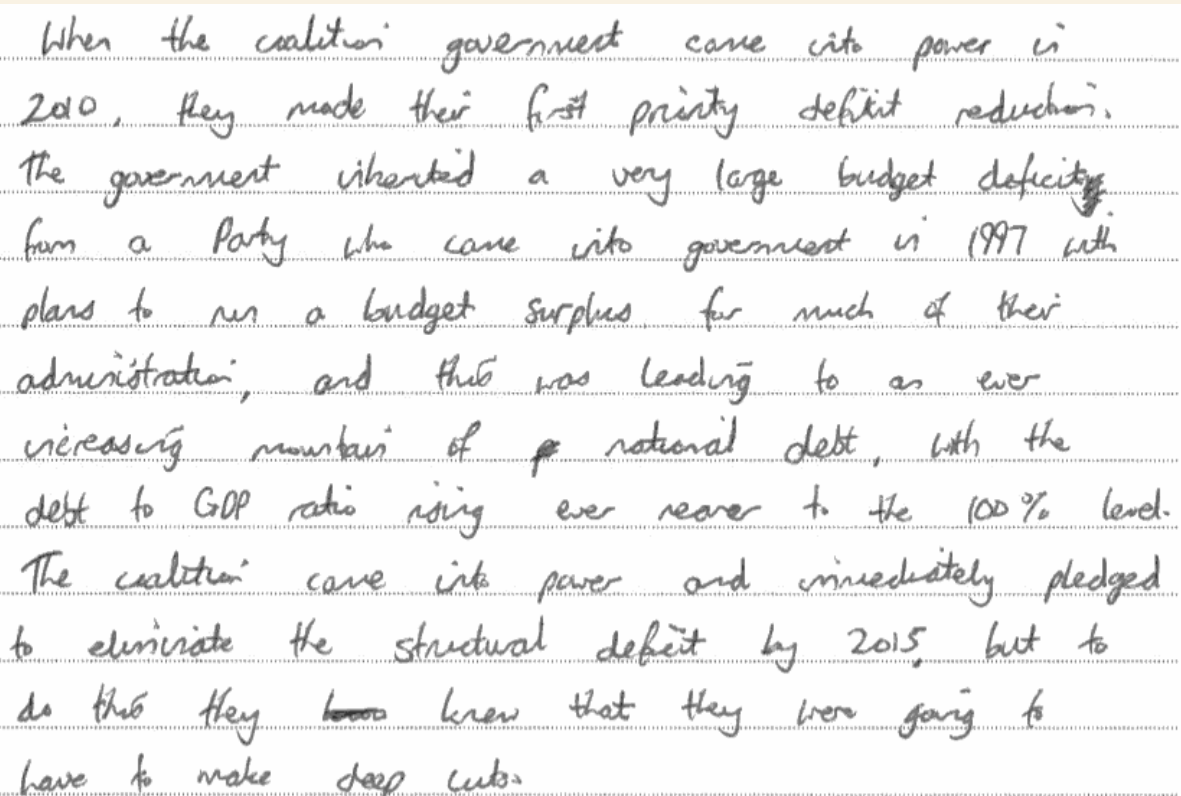 When the coalition government came into power in
2010, they made their first priority deficit reduction.
The government inherited a very large budget deficit
from a Party who came into government in 1997 with
plans to run a budget surplus for much of their
administration, and this was leading to an ever
increasing mountain of national debt, with the
debt to GDP ratio rising ever nearer to the 100% level.
The coalition came into power and immediately pledged
to eliminate the structural deficit by 2015, but to
do this they knew that they were going to
have to make deep cuts.